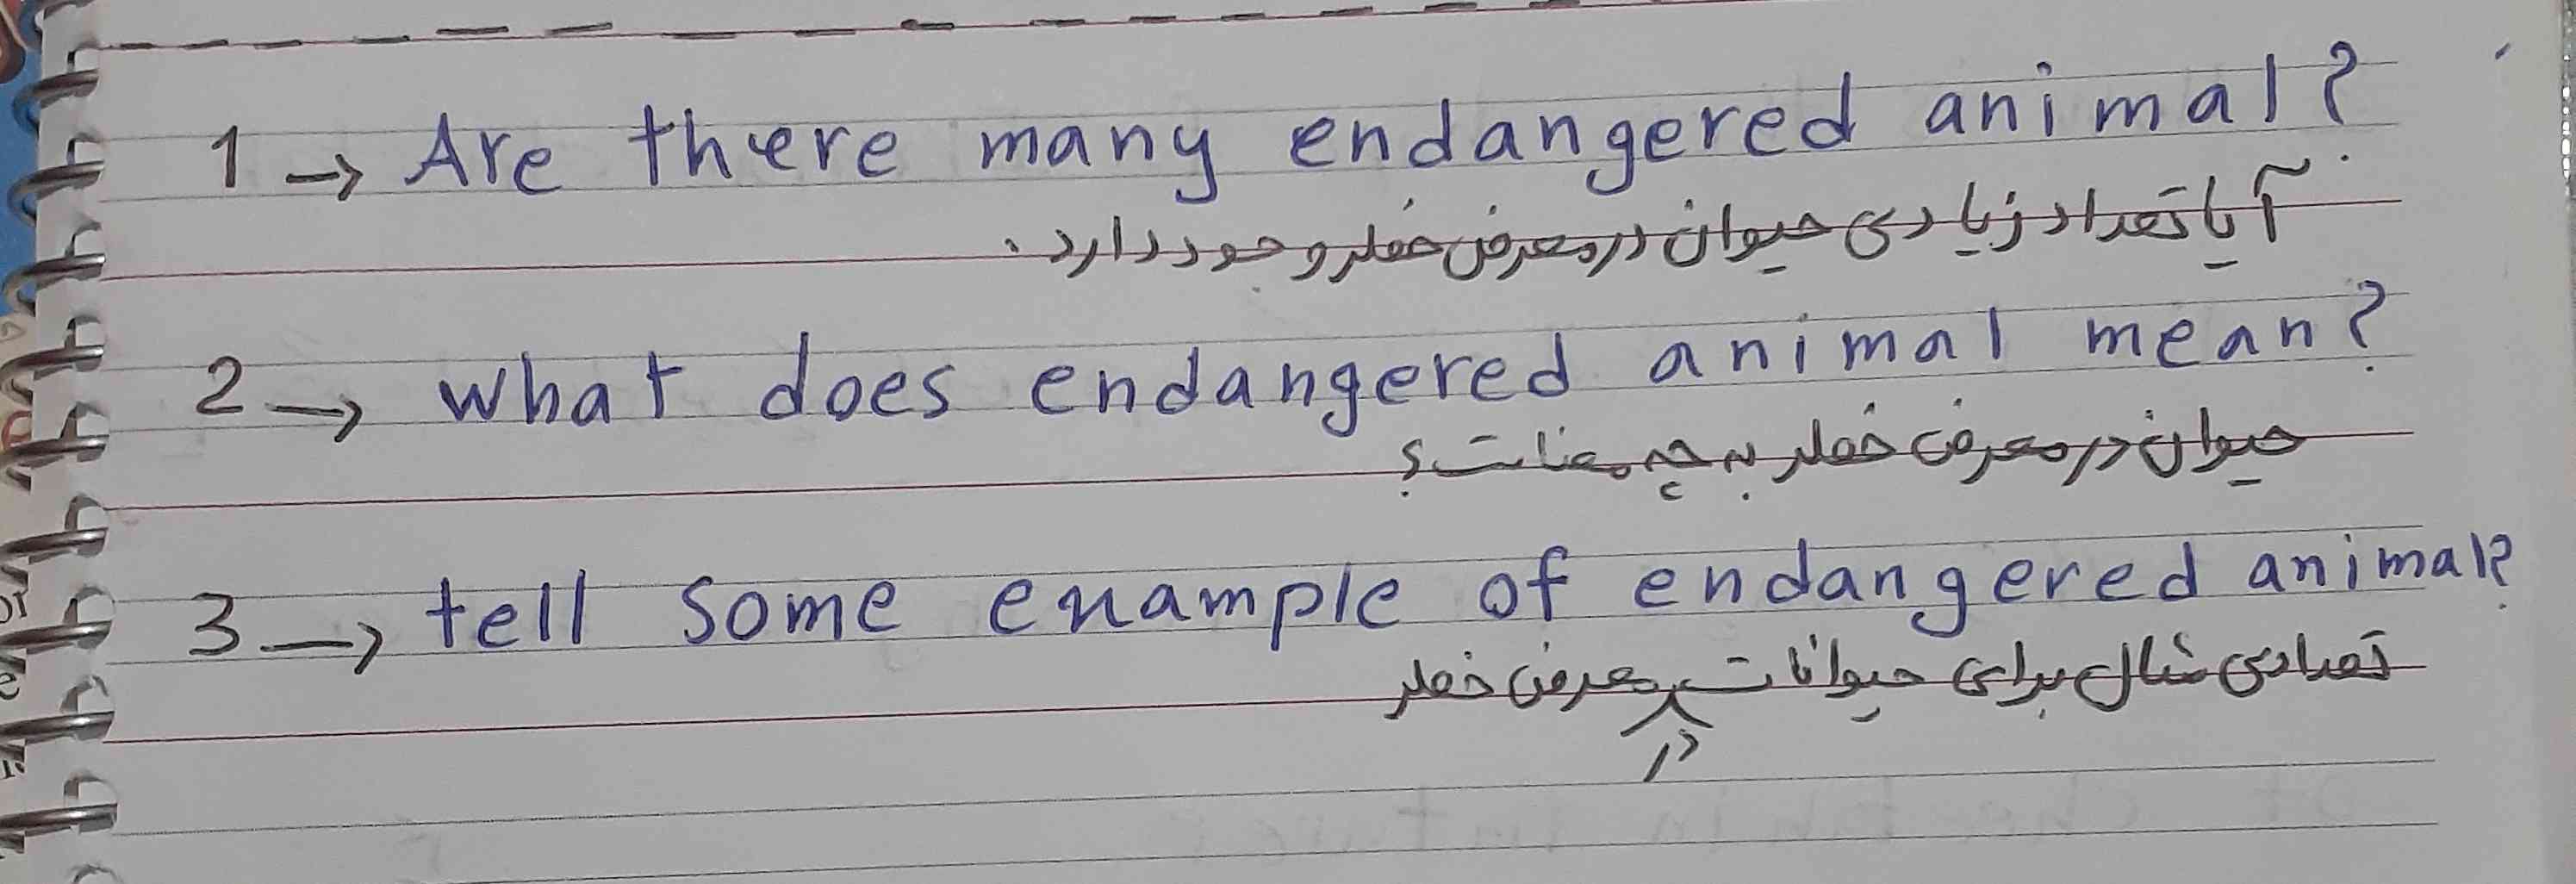 1 → Are there many endangered animal?
آیا تعداد زیادی حیوان در معرض خطر وجود دارد.
2 → what does endangered animal mean?
حیوان در معرض خطر به چه معناست؟
3 → tell some example of endangered animal?
تعدادی مثال برای حیوانات در معرض خطر